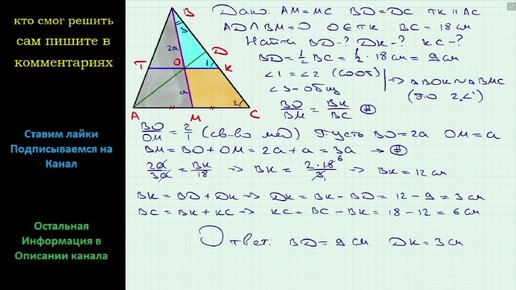 кто смог решить
сам пишите в
комментариях
Ставим лайки
Подписываемся на
Канал
Остальная
Информация в
Описании канала
B
2a
D
T
O
1
K
a
2
A
M
C
Дано: AM = MC BD = DC TK || AC
AD ∩ BM = O O ∈ TK BC = 18 см
Найти BD - ? DK - ? KC - ?
BD = 1/2 BC = 1/2 · 18 см = 9 см
<1 = <2 (соотв)
<3 - общ
=> △BOK ~ △BMC
(по 2 <)
BO/BM = BK/BC (#)
BO/OM = 2/1 (св-во мед) Пусть BO = 2a OM = a
BM = BO + OM = 2a + a = 3a → (#)
2a/3a = BK/18 => BK = 2·18/3 6 BK = 12 см
BK = BD + DK => DK = BK - BD = 12 - 9 = 3 см
BC = BK + KC => KC = BC - BK = 18 - 12 = 6 см
Ответ: BD = 9 см DK = 3 см